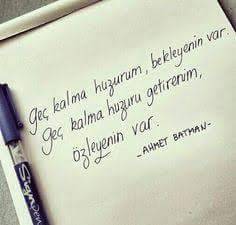 Geç kalma huzurum, bekleyenin var.
Geç kalma huzuru getirenim,
özleyenin var.
-AHMET BATMAN-
Sign